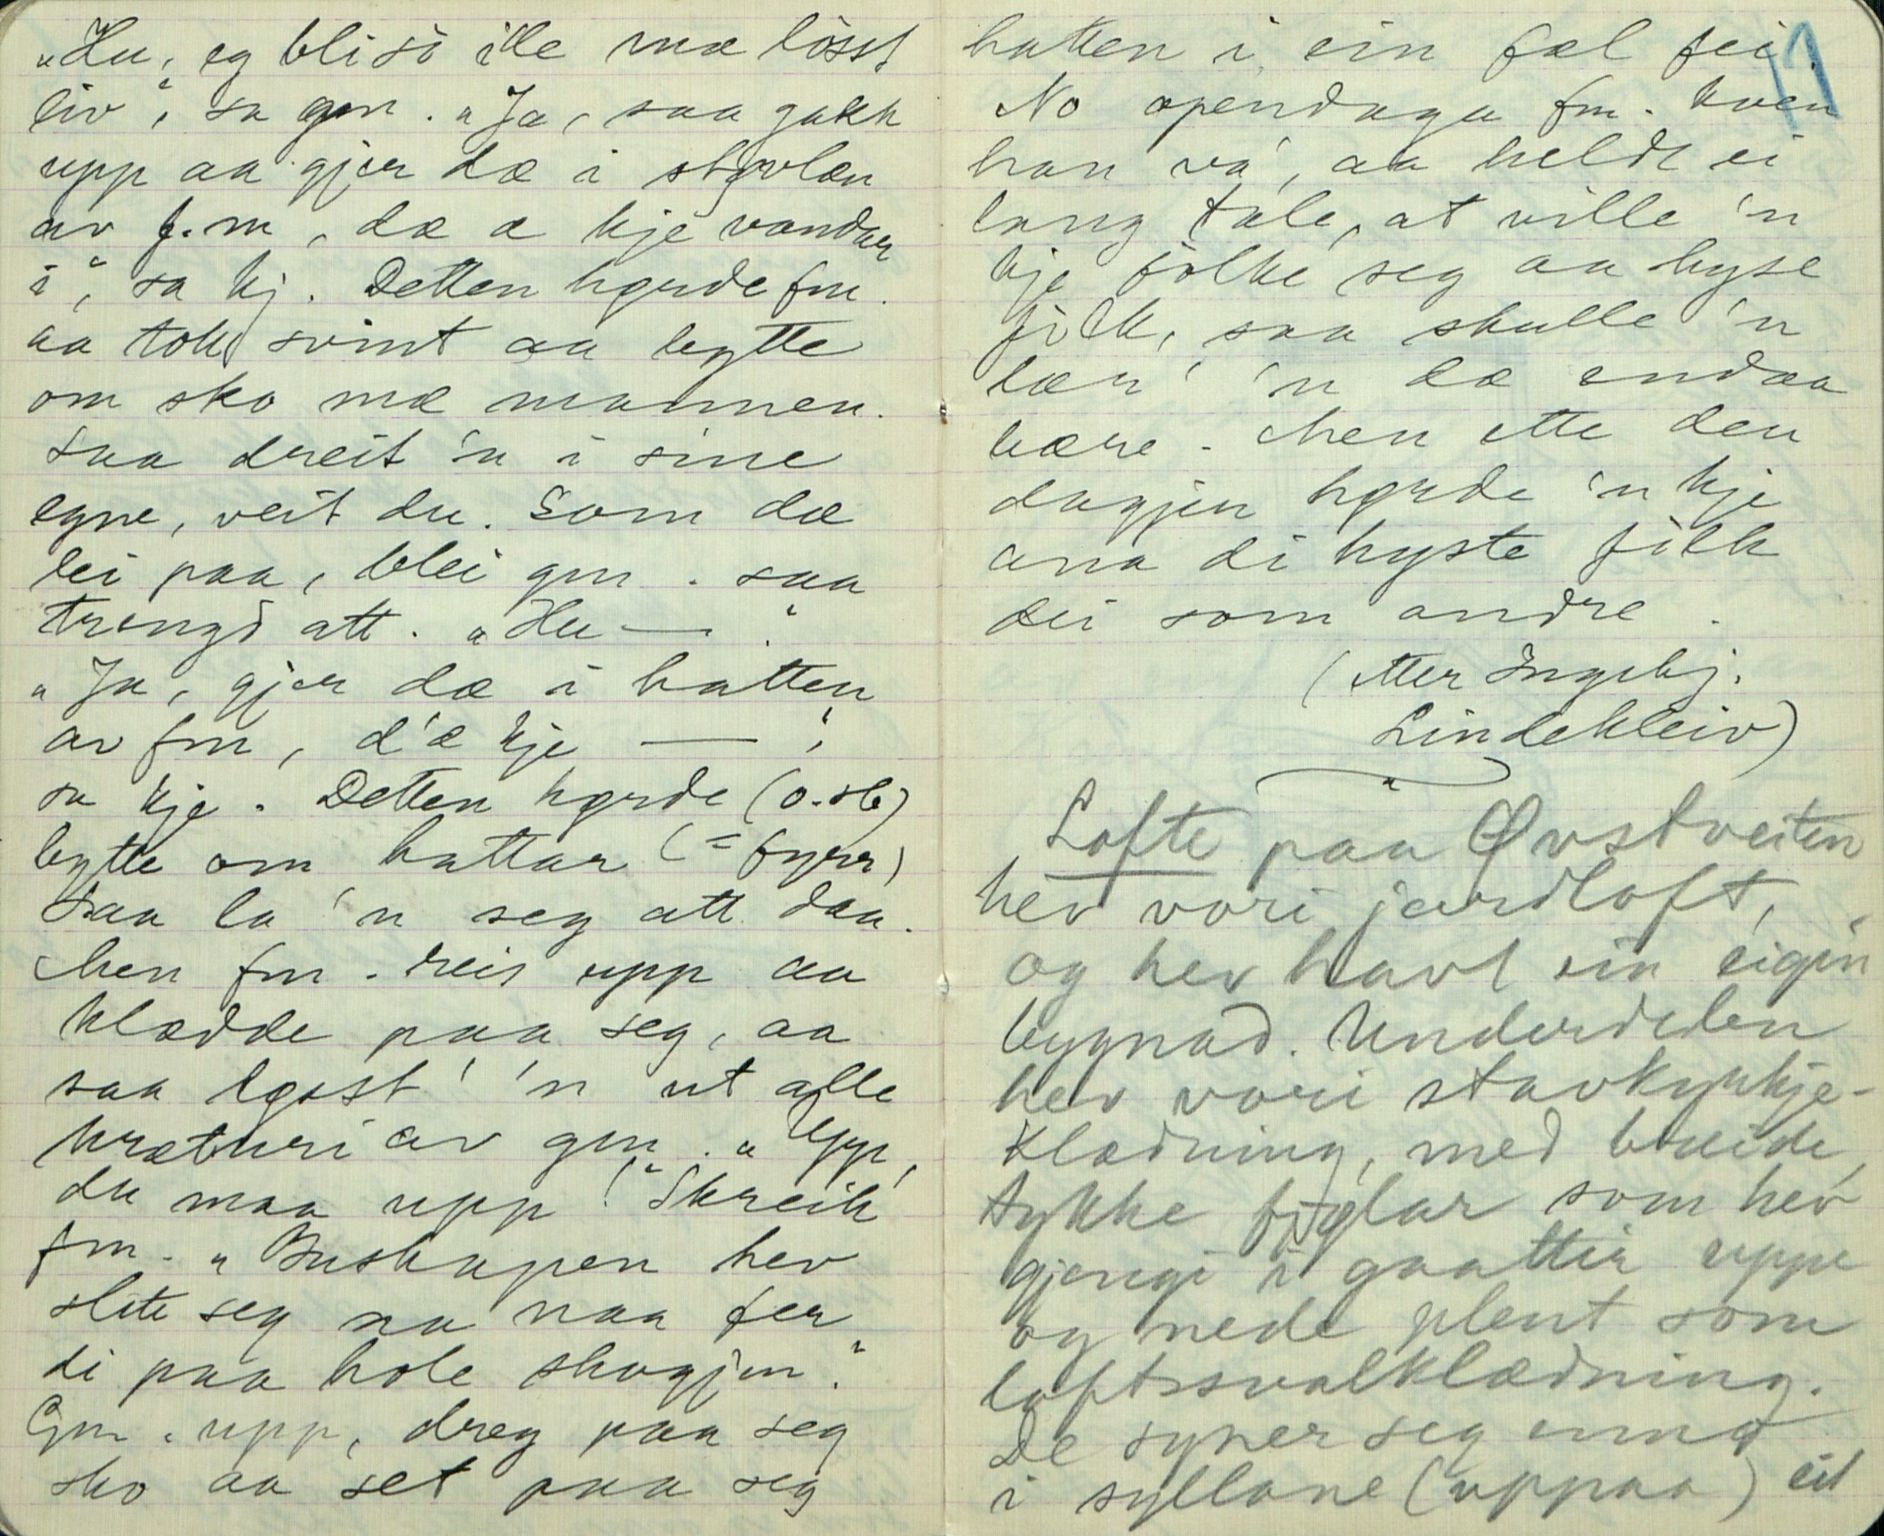 „Hu, eg bli sò ille mæ löist
liv“, sa gm. „Ja, saa gakk
upp aa gjer dæ i støvlæn
av f.m, dæ æ kje vandar
i“, sa kj. Detten hørde fm.
aa tok svint aa bytte
om sko mæ mannen.
Saa dreit 'n i sine
egne, veit du. Som dæ
lei paa, blei gm. saa
trengd att. „Hu — .“
„Ja, gjer dæ i hatten
av fm, d'æ kje — “,
sa kje. Detten hørde (o.sb)
bytte om hattar (= fyrr)
Saa la 'n seg att daa.
Men fm. reis upp aa
klædde paa seg, aa
saa løost' 'n ut alle
kræturi av gm. „Upp,
du maa upp!“ Skreik
fm. „Buskapen hev
slite seg no naa fer
di paa hole skogjen.“
Gm. upp, dreg paa seg
sko aa set paa seg
hatten i ein fæl fei.
17
No opendaga fm. kven
han va', aa heldt ei
lang tale, at ville 'n
kje fölke seg aa hyse
fölk, saa skulle 'n
lær' 'n dæ endaa
bære. Men ette den
dagjen hørde 'n kje
ana di hyste fölk
dei som andre.
(etter Ingebj.
Lindekleiv)
Lofte paa Øvstveiten
hev vori jordloft,
og hev havt ein eigin
bygnad. Underdelen
hev vori stavkyrkje-
klædning, med breide,
tykke fjølar som hev
gjengi i gaattir uppe
og nede plent som
loftssvalklædning.
De syner seg enno
i syllane (uppaa) eit